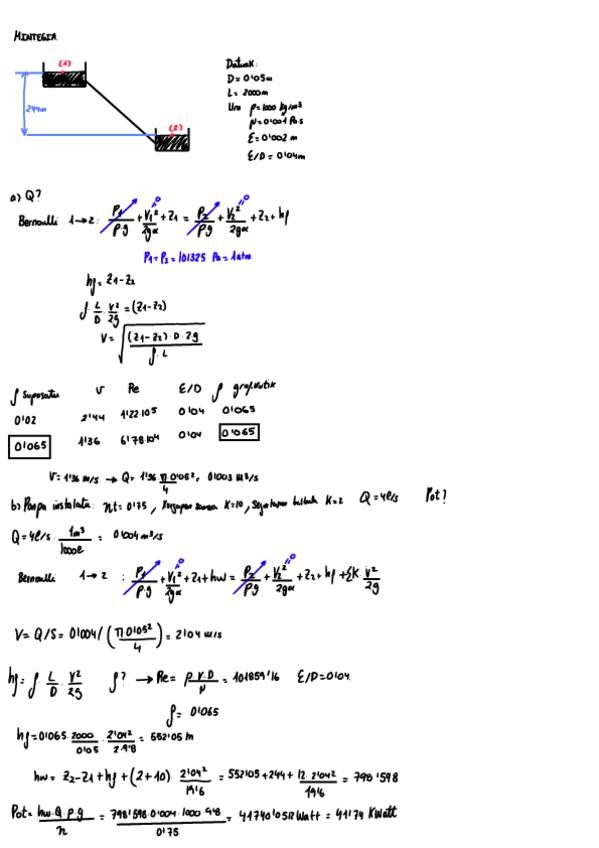 MINTEGIA
(1)
244m
(2)
Datuak:
D = 0'05m
L = 2000m
Ura ρ = 1000 kg/m³
μ = 0'001 Pa s
ε = 0'002 m
ε/D = 0'04m
a) Q?
Bernoulli 1→2: P1/ρ·g + V1²/2gα + Z1 = P2/ρg + V2²/2gα + Z2 + hf
P1 = P2 = 101325 Pa = 1atm
hf = Z1-Z2
f · L/D · V²/2g = (Z1-Z2)
V = √((Z1-Z2)·D·2g / f·L)
f suposatu V Re ε/D f grafikotik
0'02 2'44 1'22·10⁵ 0'04 0'065
0'065 1'36 6'78·10⁴ 0'04 0'065
V = 1'36 m/s → Q = 1'36 π·0'05²/4 = 0'003 m³/s
b) Ponpa instalatu: ηt = 0'75, K=10, K=2 Q = 4l/s Pot?
Q = 4l/s · 1m³/1000l = 0'004 m³/s
Bernoulli 1→2 : P1/ρ·g + V1²/2gα + Z1 + hw = P2/ρg + V2²/2gα + Z2 + hf + ΣK · V²/2g
V = Q/S = 0'004/(π·0'05²/4) = 2'04 m/s
hf = f · L/D · V²/2g f? → Re = ρ·V·D/μ = 101859'16 ε/D = 0'04
f = 0'065
hf = 0'065 · 2000/0'05 · 2'04²/2·9'8 = 552'05 m
hw = Z2-Z1 + hf + (2+10) · 2'04²/19'6 = 552'05 + 244 + 12·2'04²/19'6 = 798'598
Pot = hw·Q·ρ·g/η = 798'598·0'004·1000·9'8/0'75 = 41740'05 Watt = 41'74 KWatt